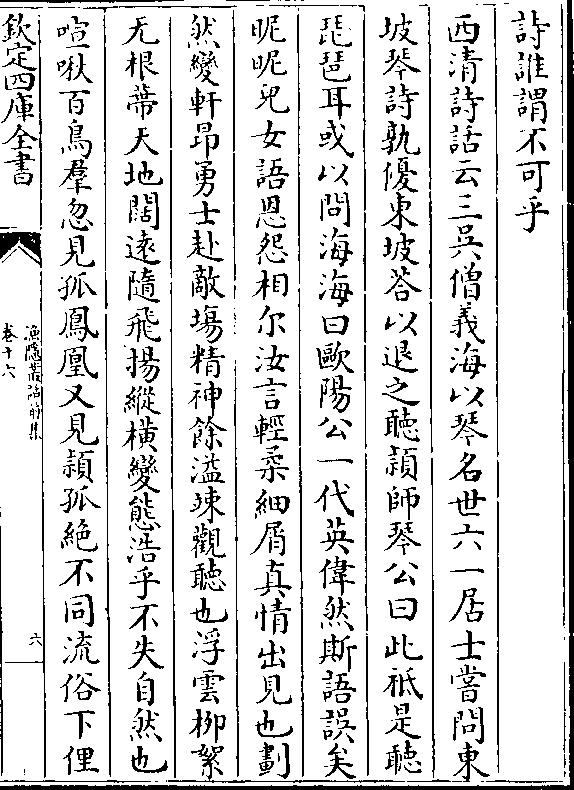 詩誰謂不可乎
西清詩話云三吳僧義海以琴名世六一居士嘗問東
坡琴詩孰優東坡荅以退之聽頴師琴公曰此祇是聽
琵琶耳或以問海海曰歐陽公一代英偉然斯語誤矣
昵昵兒女語恩怨相尔汝言輕柔細屑真情出見也劃
然變軒昂勇士赴敵場精神餘溢竦觀聽也浮雲栁絮
无根蔕天地闊逺隨飛揚縱橫變態浩乎不失自然也
喧啾百鳥羣忽見孤鳳凰又見頴孤絶不同流俗下俚
欽定四庫全書
漁隱叢話前集
卷十六
六